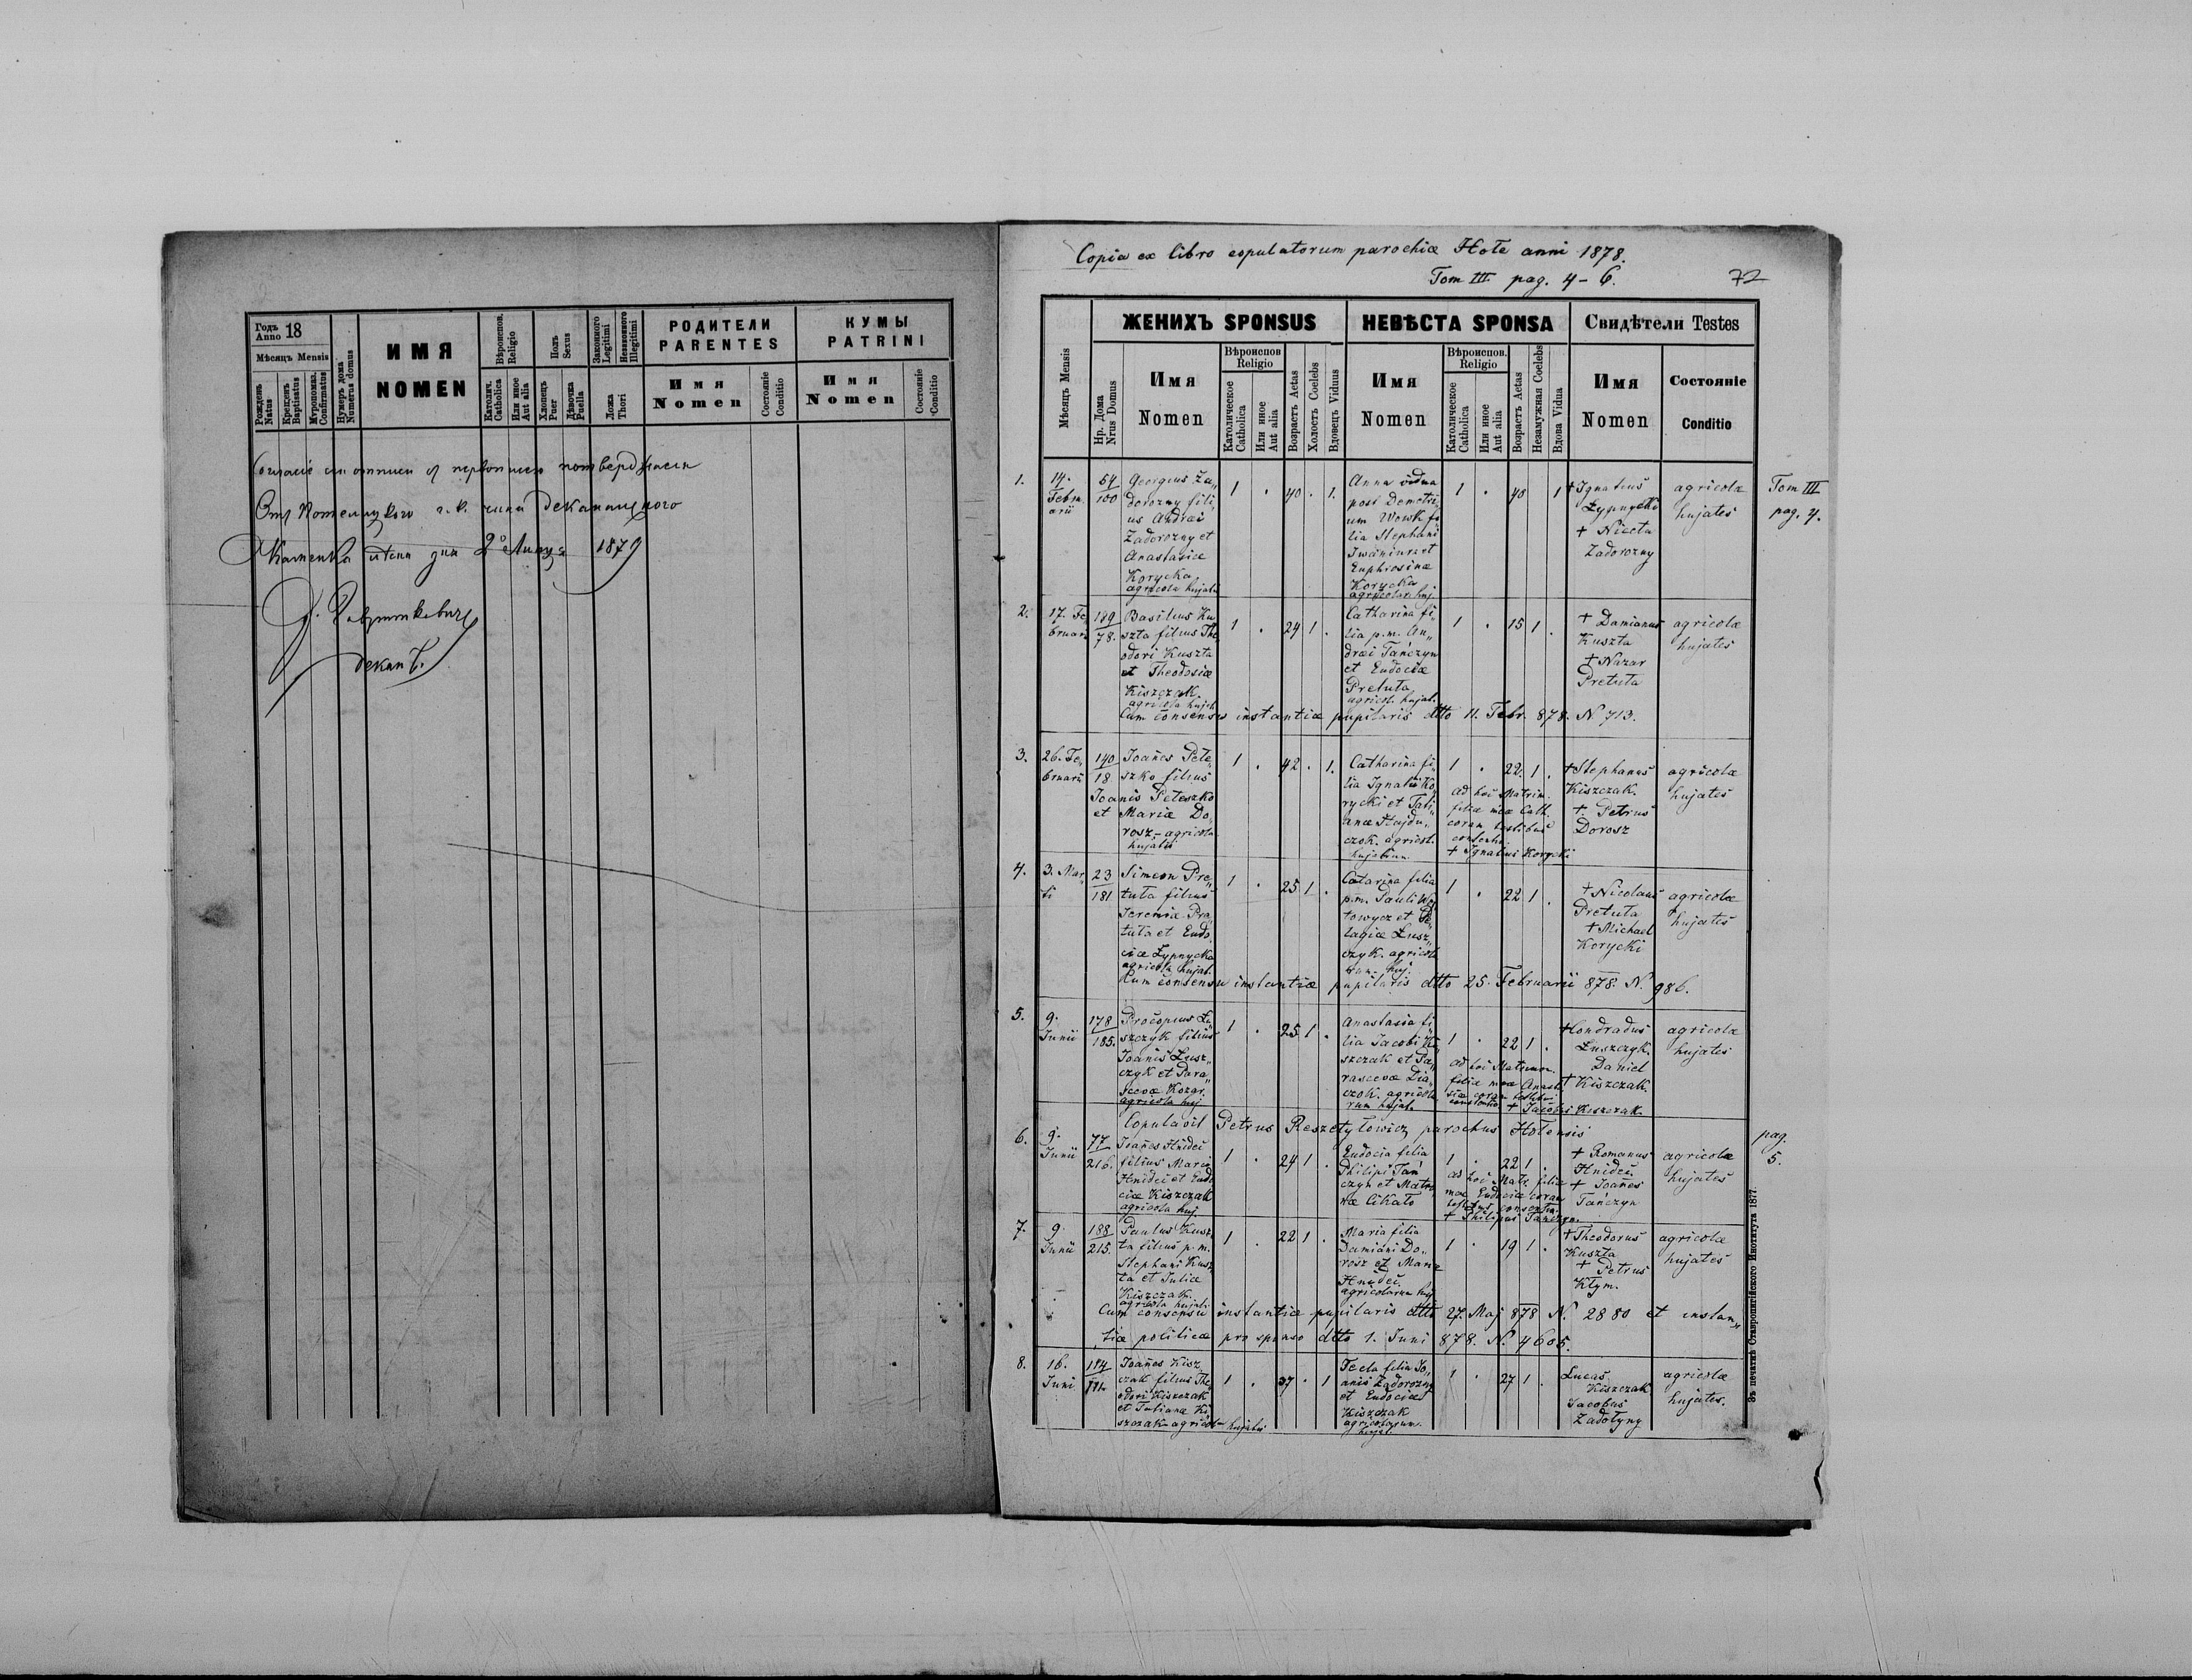 Годъ 18
Anno
Мѣсяцъ Mensis
Рожденъ Natus
Крещенъ Baptisatus
Мѵропомаз. Confirmatus
Нумеръ дома Numerus domus
ИМЯ
NOMEN
Вѣроиспов. Religio
Католич. Catholica
Или иное Aut alia
Полъ Sexus
Хлопецъ Puer
Дѣвочка Puella
Законного Legitimi
Незаконного Illegitimi
Ложа Thori
РОДИТЕЛИ
PARENTES
Имя
Nomen
Состояніе Conditio
КУМЫ
PATRINI
Имя
Nomen
Состояніе Conditio
1879
деканъ.
Copia ex libro copulatorum parochiæ Hołe anni 1878.
Tom III pag. 4-6.
72
Мѣсяцъ Mensis
ЖЕНИХЪ SPONSUS
НЕВѢСТА SPONSA
Свидѣтели Testes
Нр. Дома Nrus Domus
Имя
Nomen
Вѣроиспов
Religio
Католическое Catholica
Или иное Aut alia
Возрастъ Aetas
Холостъ Coelebs
Вдовецъ Viduus
Имя
Nomen
Вѣроиспов.
Religio
Католическое Catholica
Или иное Aut alia
Возрастъ Aetas
Незамужная Coelebs
Вдова Vidua
Имя
Nomen
Состояніе
Conditio
1. 14. Februarii
64/100
Georgius Za„
dorozny fili„
us Andrei
Zadorozny et
Anastasiæ
Korycka
agricola hujat.
1 . 40 . 1.
Anna vidua
post Demetri„
um Wowk fi
lia Stephani
et
Euphrosinæ
Korycka
agricolar. huj.
1 . 40 1
+ Ignatius
Łypnycki
+ Niceta
Zadorozny
agricolæ
hujates
Tom III
pag. 4.
2. 17. Februarii
189/78.
Basilius Ku
szta filius The
odori Kuszta
et Theodosiæ
Kiszczak.
agricola hujat.
1 . 24 1 .
Catharina fi„
lia p.m. An„
drei Tańczyn
et Eudociæ
Pretuta,
agricol. hujat.
1 . 15 1 .
+ Damianus
Kuszta
+ Nazar
Pretuta
agricolæ
hujates
Cum consensu instantiæ pupilaris dtto 11. Febr. 878. N 713.
3. 26. Februarii
140/18
Joanes Pete„
szko filius
Joanis Peteszko
et Mariæ Do„
rosz - agricola
hujatis
1 . 42 . 1.
Catharina fi„
lia Ignatii Ko„
rycki et Tati„
anæ Hajdu„
czok. agricol.
hujatium
1 . 22. 1 .
ad hoc Matrim.
filiæ meæ Cath.
coram testibus
consentio
+ Ignatius Korycki
+ Stephanus
Kiszczak.
+ Petrus
Dorosz
agricolæ
hujates
4. 3. Mar„
ti
23/181
Simeon Pre„
tuta filius
Jeremiæ Pre„
tuta et Eudo„
ciæ Łypnycka
agricola hujat.
1 . 25 1 .
Catarina filia
p.m. Pauli
et Pe„
lagiæ Łusz„
czyk. agricola
rum huj.
1 . 22 1 .
+ Nicolaus
Pretuta
+ Michael
Korycki
agricolæ
hujates
Cum consensu instantiæ pupilaris dtto 25. Februarii 878. N. 986.
5. 9.
Junii
178/185.
Procopius Łu„
szczyk filius
Joanis Łusz„
czyk et Para„
scevæ Kozar.
agricola huj.
1 . 25 1 .
Anastasia fi„
lia Jacobi Ki„
szczak et Pa„
rascevæ Dia„
czok. agricola
rum hujat.
1 . 22 1 .
ad hoc Matrimon.
filiæ meæ Anasta
siæ coram testibus
consentio + Jacobus Kiszczak.
+ Condradus
Łuszczyk.
Daniel
+ Kiszczak.
agricolæ
hujates
Copulavit Petrus Reszetyłowicz parochus Hołensis
6. 9.
Junii
77/216.
Joanes Hnideć
filius Marci
Hnideć et Eudo
ciæ Kiszczak
agricola huj.
1 . 24 1 .
Eudocia filia
Philipi Tań
czyn et Matro„
næ Cikało
1 . 22 1 .
ad hoc Matr. filiæ
meæ Eudociæ coram
testibus consentio.
+ Philipus Tańczyn.
+ Romanus
Hnideć.
+ Joanes
Tańczyn
agricolæ
hujates
pag.
5.
7. 9.
Junii
188/215.
Paulus Kusz„
ta filius p.m.
Stephani Kusz„
ta et Juliæ
Kiszczak.
agricola hujatis
1 . 22 1 .
Maria filia
Damiani Do„
rosz et Mariæ
Hnideć.
agricolarum huj.
1 . 19 1 .
+ Theodorus
Kuszta
+ Petrus
Kłym.
agricolæ
hujates
Cum consensu instantiæ pupilaris dtto 27. Maj 878 N. 2880 et instan„
tiæ politicæ pro sponso dtto 1. Juni 878. N. 4605.
8. 16.
Juni
Joanes Kisz„
czak filius The„
odori Kiszczak
et Tatianæ Ki
szczak - agricola hujatis
1 . 37 . 1
Tecla filia Jo„
anis Zadorozny
et Eudociæ
Kiszczak
agricolarum.
hujat.
1 . 27 1 .
Lucas
Kiszczak
Jacobus
Zadołyny
agricolæ
hujates.
Зъ печатнѣ Ставропигійского Института 1877.